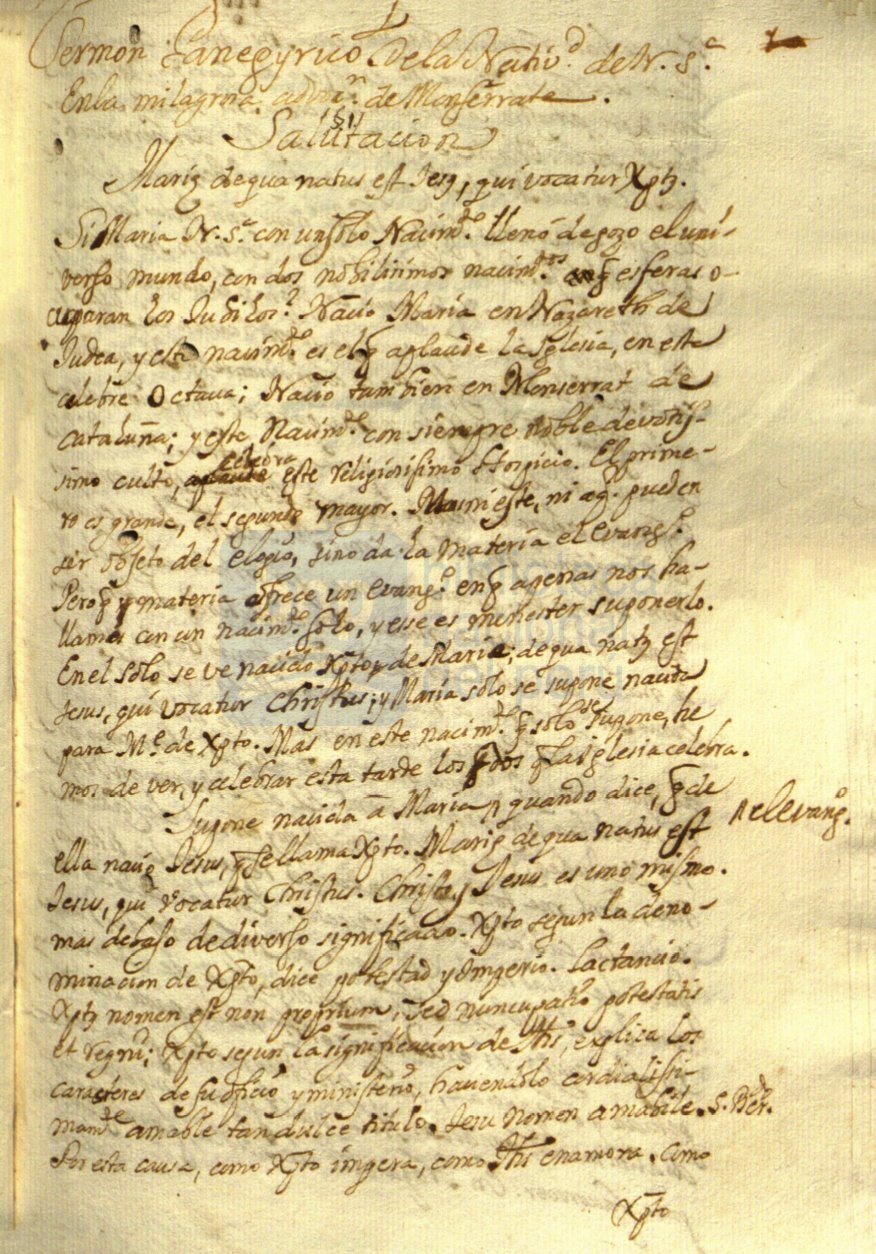 Sermon Panegyrico de la Nativ.d de N. S.a
En la milagrosa de Monserrate.
Salutacion
Mariȩ de qua natus est Jesȝ, qui vocatur Xptȝ.
Si Maria N. S.a con un solo Nacim.to llenó de gozo el uni-
verso mundo, con dos nobilisimos nacim.tos q esferas o-
cuparan los Jubilos? Nació Maria en Nazareth de
Judea, y este nacim.to es el q aplaude la Iglesia, en esta
celebre Octava; Nació tambien en Monserrat de
Cataluña; y este Nacim.to con siempre noble devotis-
simo culto, celebra este religiosisimo Hospicio. El prime-
ro es grande, el segundo mayor. Mas ni este, ni aq.l pueden
ser objeto del elogio, sino da la materia el Evang.o
Pero q materia ofrece un Evang.o en q apenas nos ha-
llamos con un nacim.to solo, y esse es menester suponerlo.
En el solo se ve nacido Xpto de Maria; de qua natȝ est
Jesus, qui vocatur Christus; y Maria solo se supone nacida
para M.e de Xpto. Mas en este nacim.to q solo se supone, he
mos de ver, y celebrar esta tarde los dos q la iglesia celebra.
Supone nacida â Maria quando dice, q de
el evang.o
ella nació Jesus, q se llama Xpto. Mariȩ de qua natus est
Jesus, qui vocatur Christus. Christo, y Jesus es uno mismo.
mas debajo de diverso significado. Xpto segun la deno-
minacion de Xpto, dice potestad y Imperio. Lactancio.
Xptȝ nomen est non proprium, sed nuncupatio potestatis
et regni; Xpto segun la significacion de Jhs, explica los
caracteres de su oficio y ministerio, haciendolo cordialissi-
mam.te amable tan dulce titulo. Jesu nomen amabile. S. Ber.d
Por esta causa, como Xpto impera, como Jhs enamora. Como
Xpto